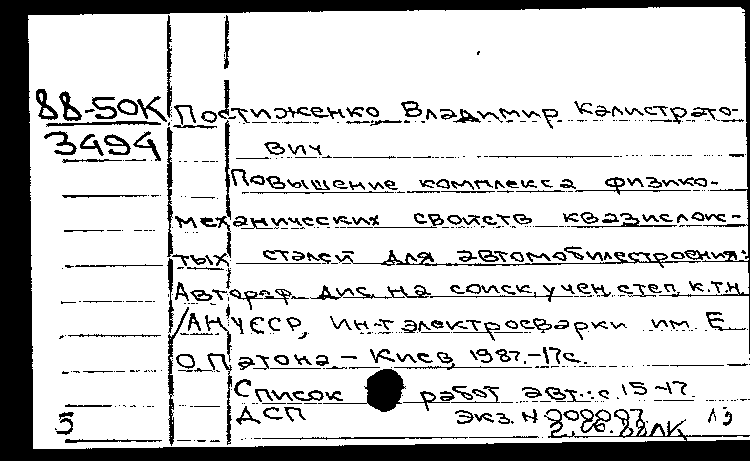 88-50К Постиженко Владимир Калистрато-
3494 вич
Повышение комплекса физико-
механических свойств квазислоис-
тых сталей для автомобилестроения:
Автореф. дис. на соиск. учен. степ. к.т.н.
/АН УССР, Ин-т электросварки им. Е.
О. Патона – Киев, 1987.-17с.
Список работ авт.: с. 15-17.
ДСП Экз. N 000007
5 2.06.88 ЛК